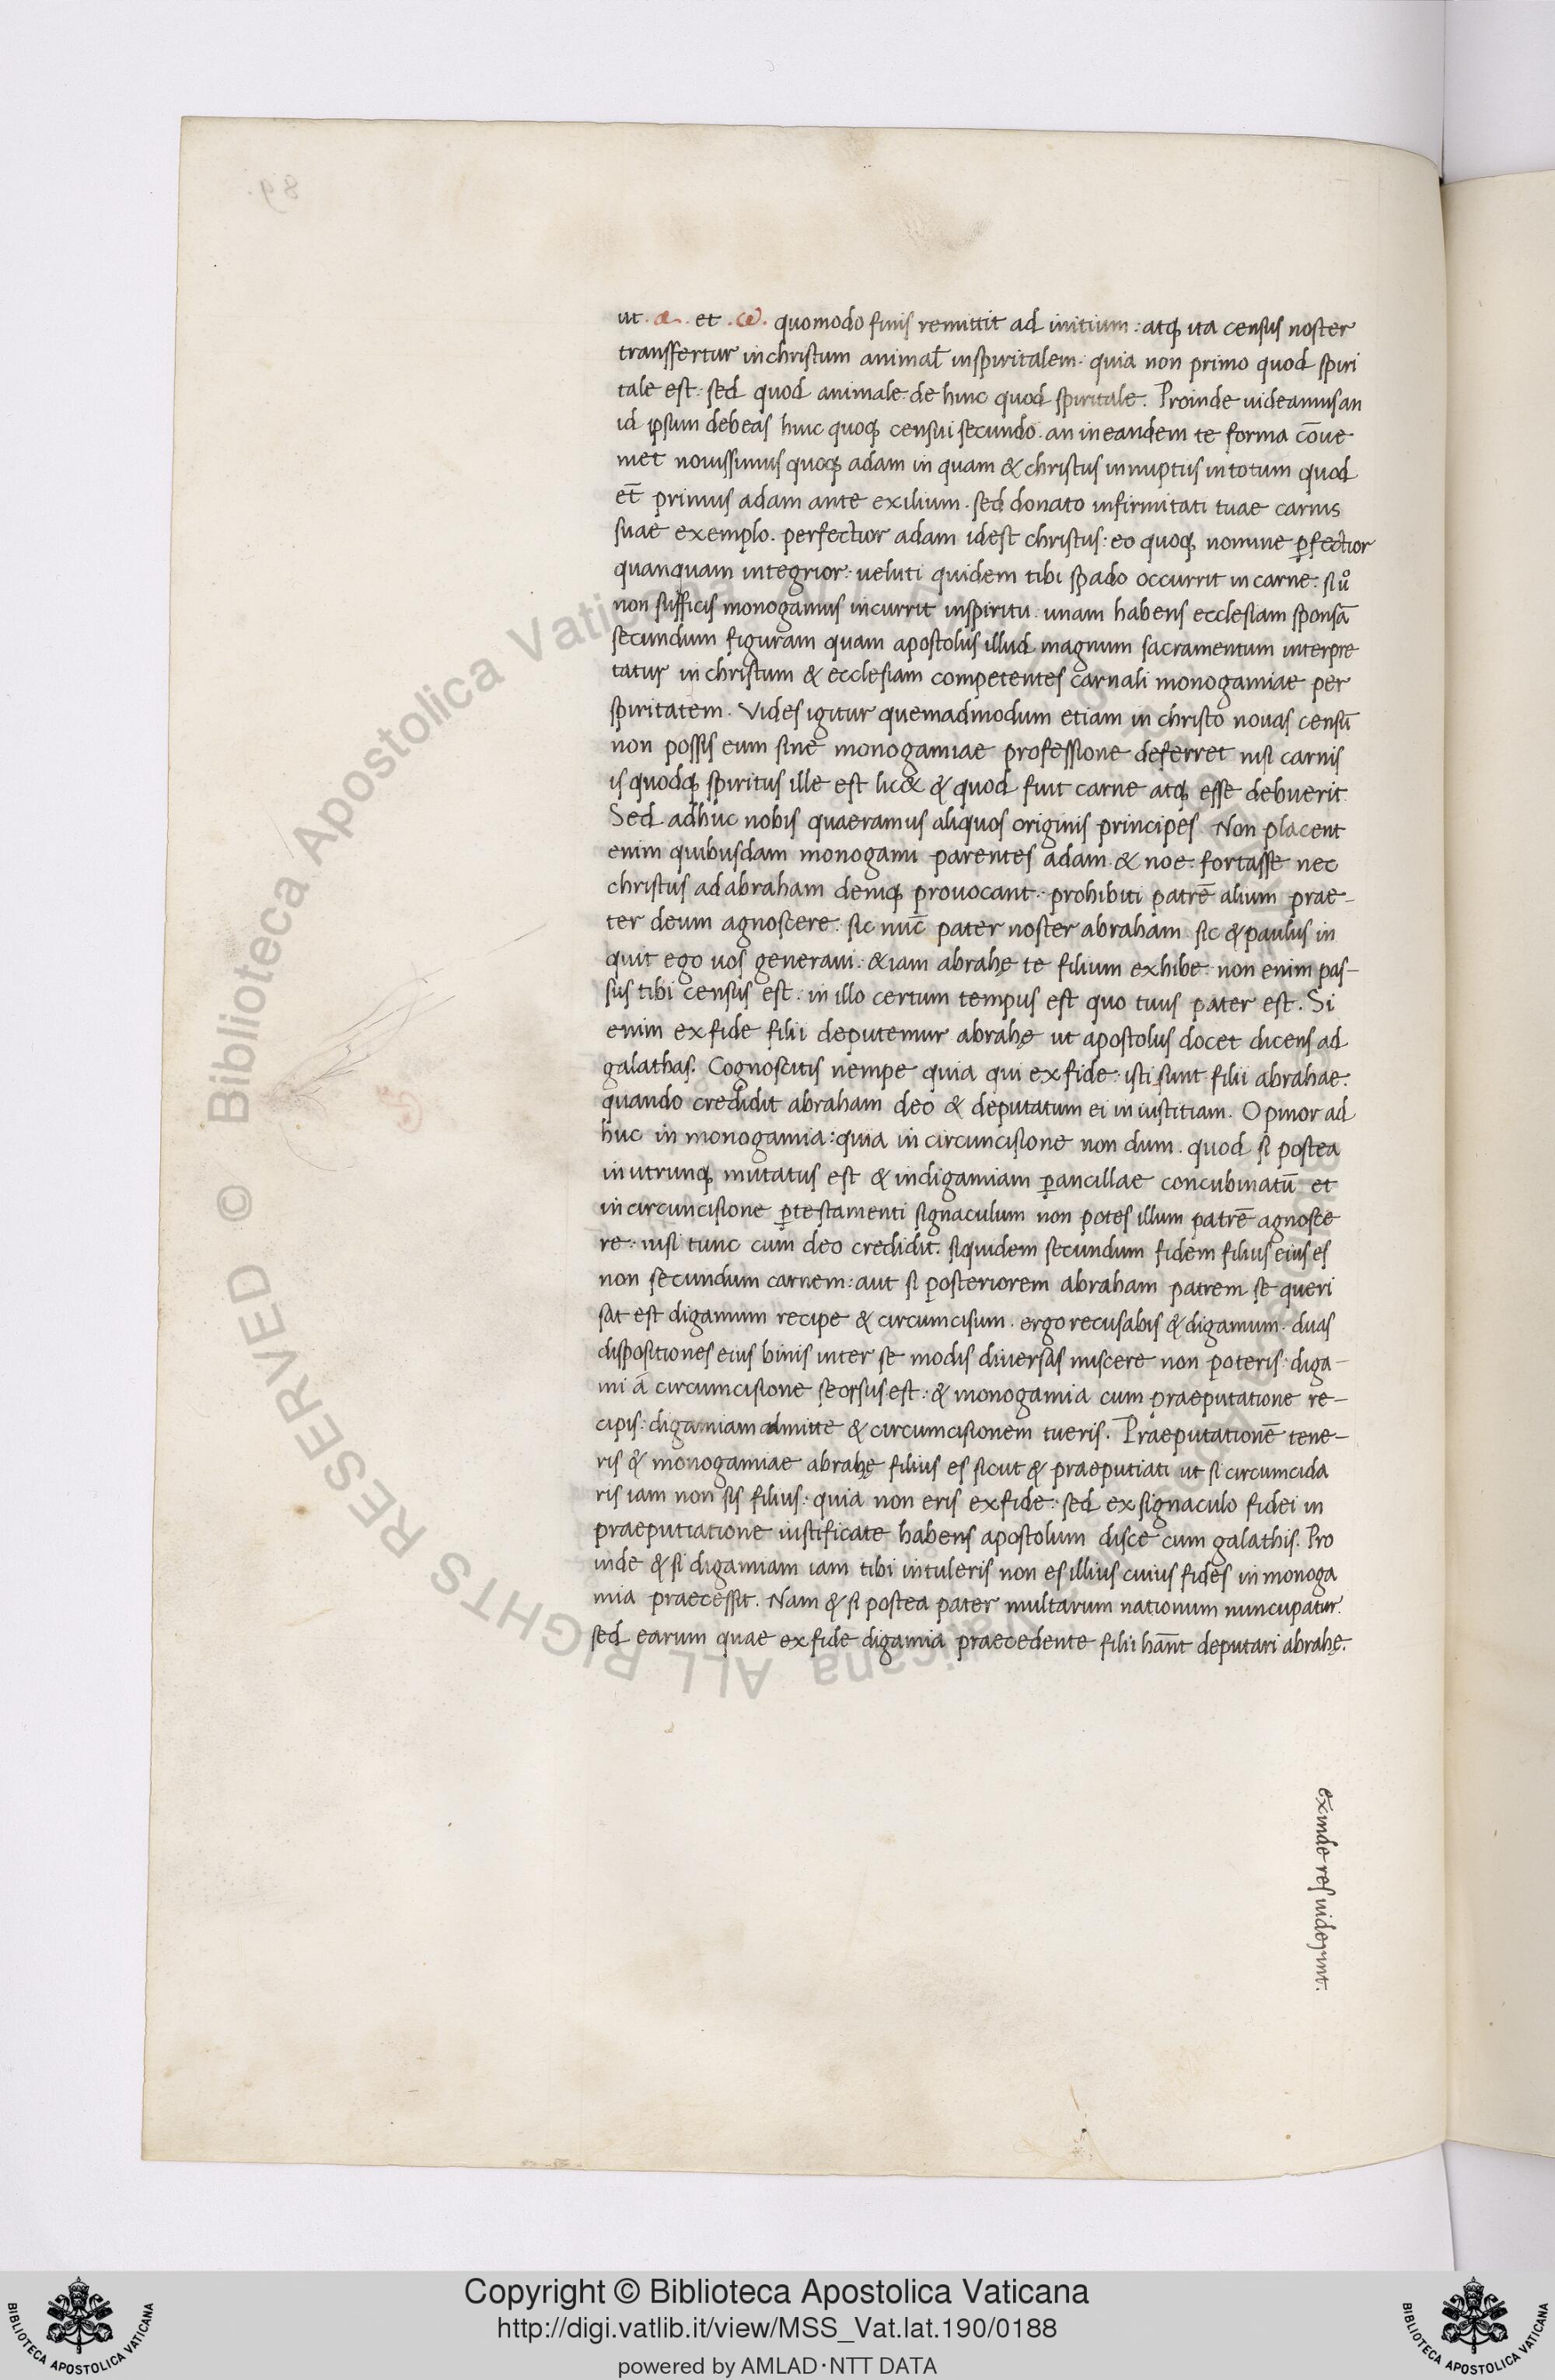 ut .α. et .ω. quomodo finis remittit ad initium : atq; ita census noster
transfertur in christum animal̄ in spiritalem. quia non primo quod spiri
tale est : sed quod animale. de hinc quod spiritale. Proinde uideamus an
id ipsum debeas huic quoq; censui secundo. an in eandem te forma cōue
niet nouissimus quoq; adam in quam & christus in nuptiis in totum quod
et̄ primus adam ante exilium. sed donato infirmitati tuae carnis
suae exemplo. perfectior adam idest christus : eo quoq; nomine ꝑfectior
quanquam integrior : ueluti quidem tibi spado occurrit in carne : si uͦ
non sufficis monogamus incurrit in spiritu : unam habens ecclesiam sponsā
secundum figuram quam apostolus illud magnum sacramentum interpre
tatur in christum & ecclesiam competentes carnali monogamiae per
spiritatem. Vides igitur quemadmodum etiam in christo nouas censū
non possis eum sine monogamiae professione deferret nisi carnis
is quodq; spiritus ille est lic& & quod fuit carne atq; esse debuerit.
Sed adhuc nobis quaeramus aliquos originis principes. Non placent
enim quibusdam monogami parentes adam. & noe : fortasse nec
christus ad abraham deniq; prouocant : prohibiti patrē alium prae-
ter deum agnoscere : sic nūc pater noster abraham. sic & paulus in
quit ego uos generaui : & iam abrahę te filium exhibe : non enim pas-
sus tibi census est : in illo certum tempus est quo tuus pater est. Si
enim ex fide filii deputemur abrahę ut apostolus docet dicens ad
galathas. Cognoscitis nempe quia qui ex fide : isti sunt filii abrahae.
quando credidit abraham deo & deputatum ei in iustitiam. Opinor ad
huc in monogamia : quia in circuncisione non dum. quod si postea
in utrunq; mutatus est & in digamiam ꝑ ancillae concubinatū et
in circuncisione ꝑ testamenti signaculum non potes illum patrē agnosce
re : nisi tunc cum deo credidit. siquidem secundum fidem filius eius es
non secundum carnem : aut si posteriorem abraham patrem se queri
sat est digamum recipe & circumcisum. ergo recusabis & digamum : duas
dispositiones eius binis inter se modis diuersas miscere non poteris : diga-
mi ā circumcisione seorsus est : & monogamia cum praeputatione re-
cipis : digamiam admitte & circumcisionem tueris. Praeputationē tene-
ris & monogamiae abrahę filius es sicut & praeputiati ut si circumcida
ris iam non sis filius : quia non eris ex fide : sed ex signaculo fidei in
praeputiatione iustificate habens apostolum disce cum galathis. Pro
inde & si digamiam iam tibi intuleris non es illius cuius fides in monoga
mia praecessit. Nam & si postea pater multarum nationum nuncupatur.
sed earum quae ex fide digamia praecedente filii hān̄t deputari abrahę.
exinde res uiderint.
89.
© Biblioteca Apostolica Vaticana ALL RIGHTS RESERVED
Copyright © Biblioteca Apostolica Vaticana
http://digi.vatlib.it/view/MSS_Vat.lat.190/0188
powered by AMLAD·NTT DATA
BIBLIOTECA APOSTOLICA VATICANA
BIBLIOTECA APOSTOLICA VATICANA